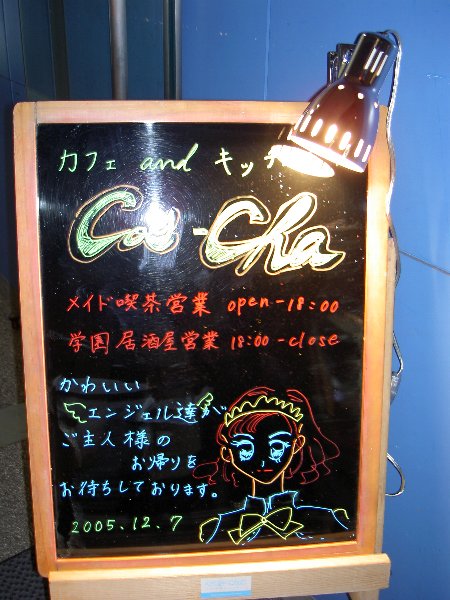 カフェ and キッチ
Ca-Cha
メイド喫茶営業 open-18:00
学園居酒屋営業 18:00-close
かわいい
エンジェル達が
ご主人様の
お帰りを
お待ちしております。
2005.12.7